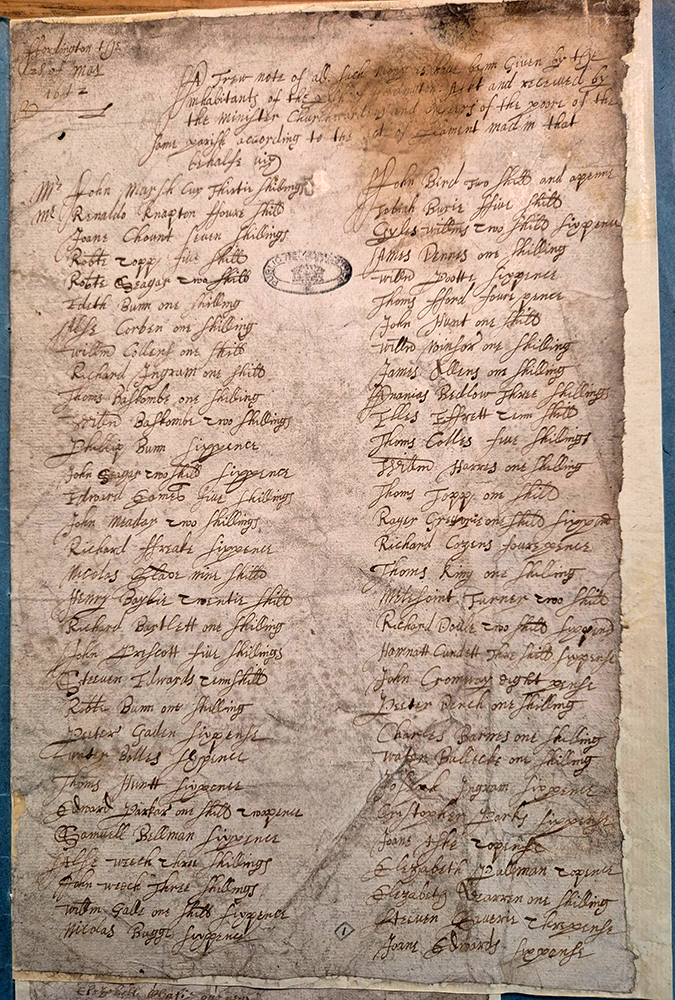 ffordington the
of May
1642
A Trew note of all such mony as have been Given by the
inhabitants of the and received by
the Minister Churchwardens and of the poore of the
same parish according to the Act of parliament mad in that
behalfe viz
Mr John Marsh Cur Thirtie shillings
Mr Renaldo Knapton ffoure shill
Joane Chount seven shillings
Robte Topp five shill
Robte Seagar two shill
Edeth Bunn one shilling
Alse Corben one shilling
Willm Collens one shill
Richard Ingram one shill
Thoms Baskombe one shilling
Willm Baskombe two shillings
Phillip Bunn sixpence
John Seagar two shill sixpence
Edward five shillings
John Meader two shillings
Richard ffreate sixpence
Nicolas Slade nine shill
Henry twentie shill
Richard Bartlett one shilling
John Prescott five shillings
Steeven Edwards tenn shill
Robte Bunn one shilling
Peeter Gaden sixpense
Water Bolles sixpence
Thoms Huntt sixpence
Edward Parkar one shill twopence
Samuell Bellman sixpence
Alse weech three shillings
John weeck three shillings
Willm Gale one shill sixpence
Nicolas Bugge sixpence
John Bird two shill and a penne
Tobiah five shill
Gyles Willms two shill sixpence
James Dennes one shilling
Willm sixpence
Thoms fford foure pence
John Hunt one shill
Willm Winsor one shilling
James Ellens one shilling
Ananias Bedlow Three shillings
Effrett tenn shill
Thoms Colles five shillings
Willm Harres one shilling
Thoms Topp one shill
Roger one shill sixpence
Richard Cozens foure pence
Thoms King one shilling
Turner two shill
Richard two shill sixpense
Hannatt Cundett three shill sixpense
John eight pense
Peeter Dench one shilling
Charles Barnes one shilling
one shilling
Joseph Ingram sixpence
Cristopher sixpense
Joane twopense
Elizabeth Pullman twopence
Elizabeth one shilling
Steeven threpense
Joane Edwards sixpense
1